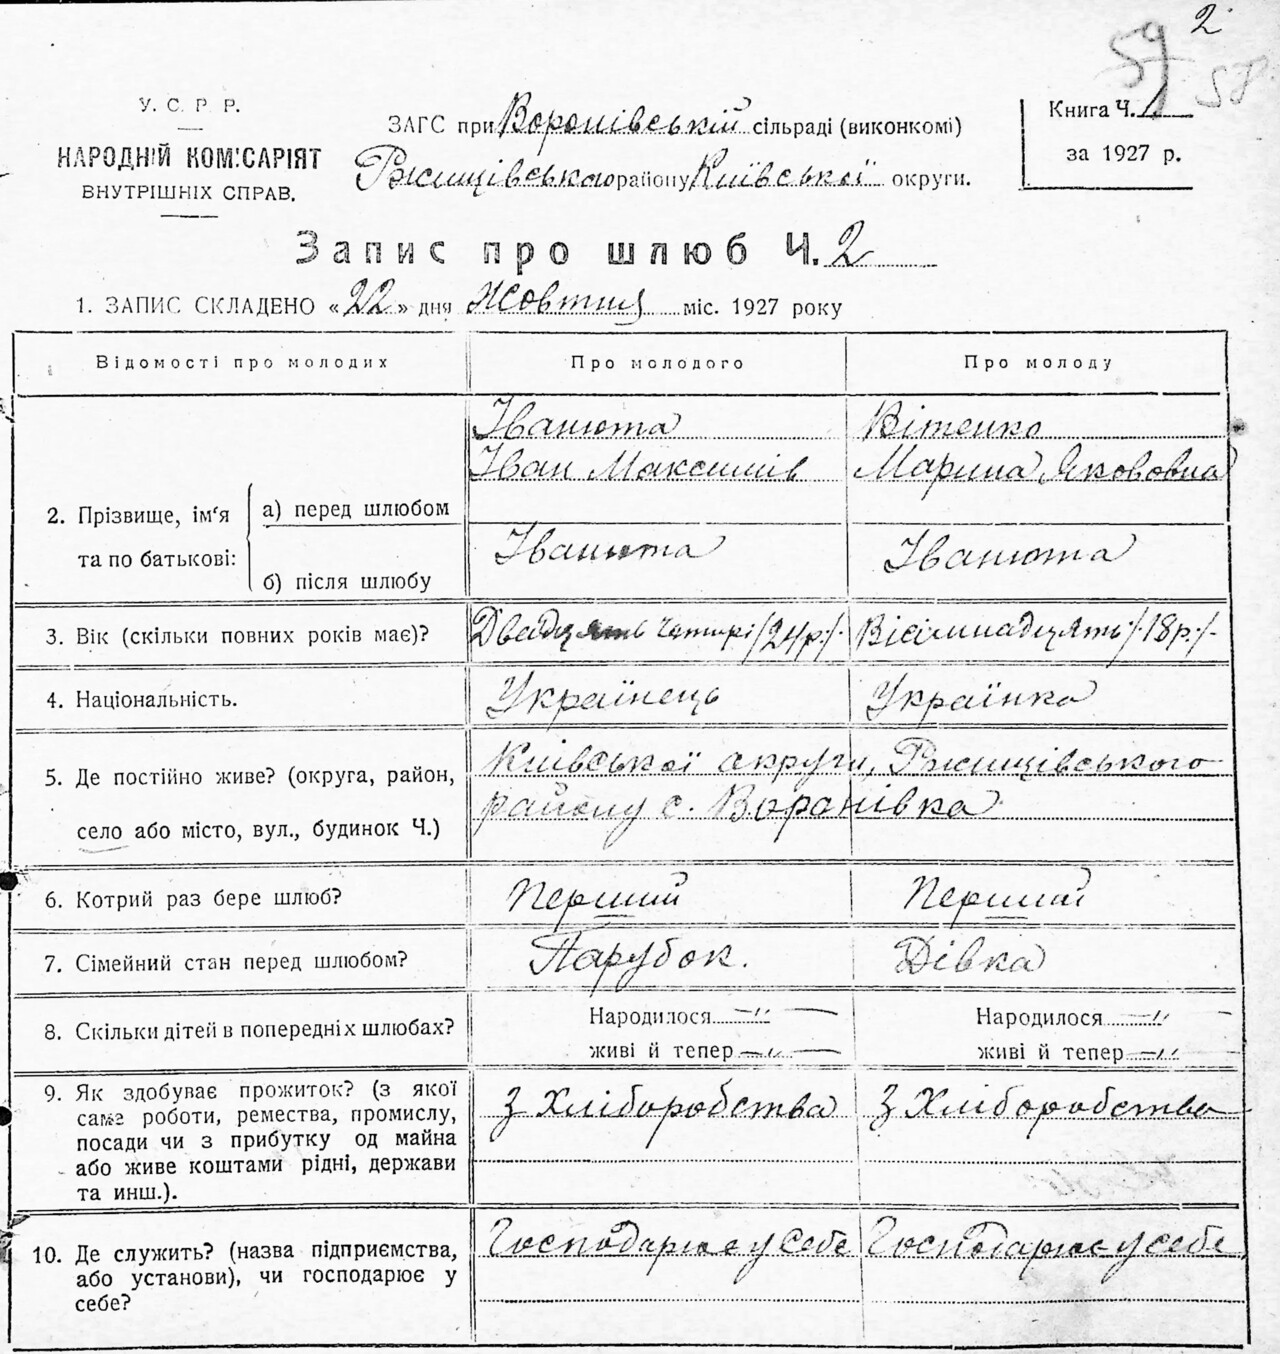 2
59
58
У. С. Р. Р.
НАРОДНІЙ КОМІСАРІЯТ
ВНУТРІШНІХ СПРАВ.
ЗАГС при Воронівській сільраді (виконкомі)
Ржищівського району Київської округи.
Книга Ч. 1
за 1927 р.
Запис про шлюб Ч. 2
1. ЗАПИС СКЛАДЕНО «22» дня Жовтня міс. 1927 року
Відомості про молодих
Про молодого
Про молоду
2. Прізвище, ім'я та по батькові:
а) перед шлюбом
Іванюта
Іван Максимів
Вітенко
Марина Якововна
б) після шлюбу
Іванюта
Іванюта
3. Вік (скільки повних років має)?
Двадцять чотирі /24р./-
Вісімнадцять /18р./-
4. Національність.
Українець
Українка
5. Де постійно живе? (округа, район,
село або місто, вул., будинок Ч.)
Київської округи, Ржищівського
району с. Воронівка
6. Котрий раз бере шлюб?
Перший
Перший
7. Сімейний стан перед шлюбом?
Парубок.
Дівка
8. Скільки дітей в попередніх шлюбах?
Народилося —"—
живі й тепер —"—
Народилося —"—
живі й тепер —"—
9. Як здобуває прожиток? (з якої
саме роботи, ремества, промислу,
посади чи з прибутку од майна
або живе коштами рідні, держави
та инш.).
З Хліборобства
З Хліборобства
10. Де служить? (назва підприємства,
або установи), чи господарює у
себе?
Господарює у себе
Господарює у себе